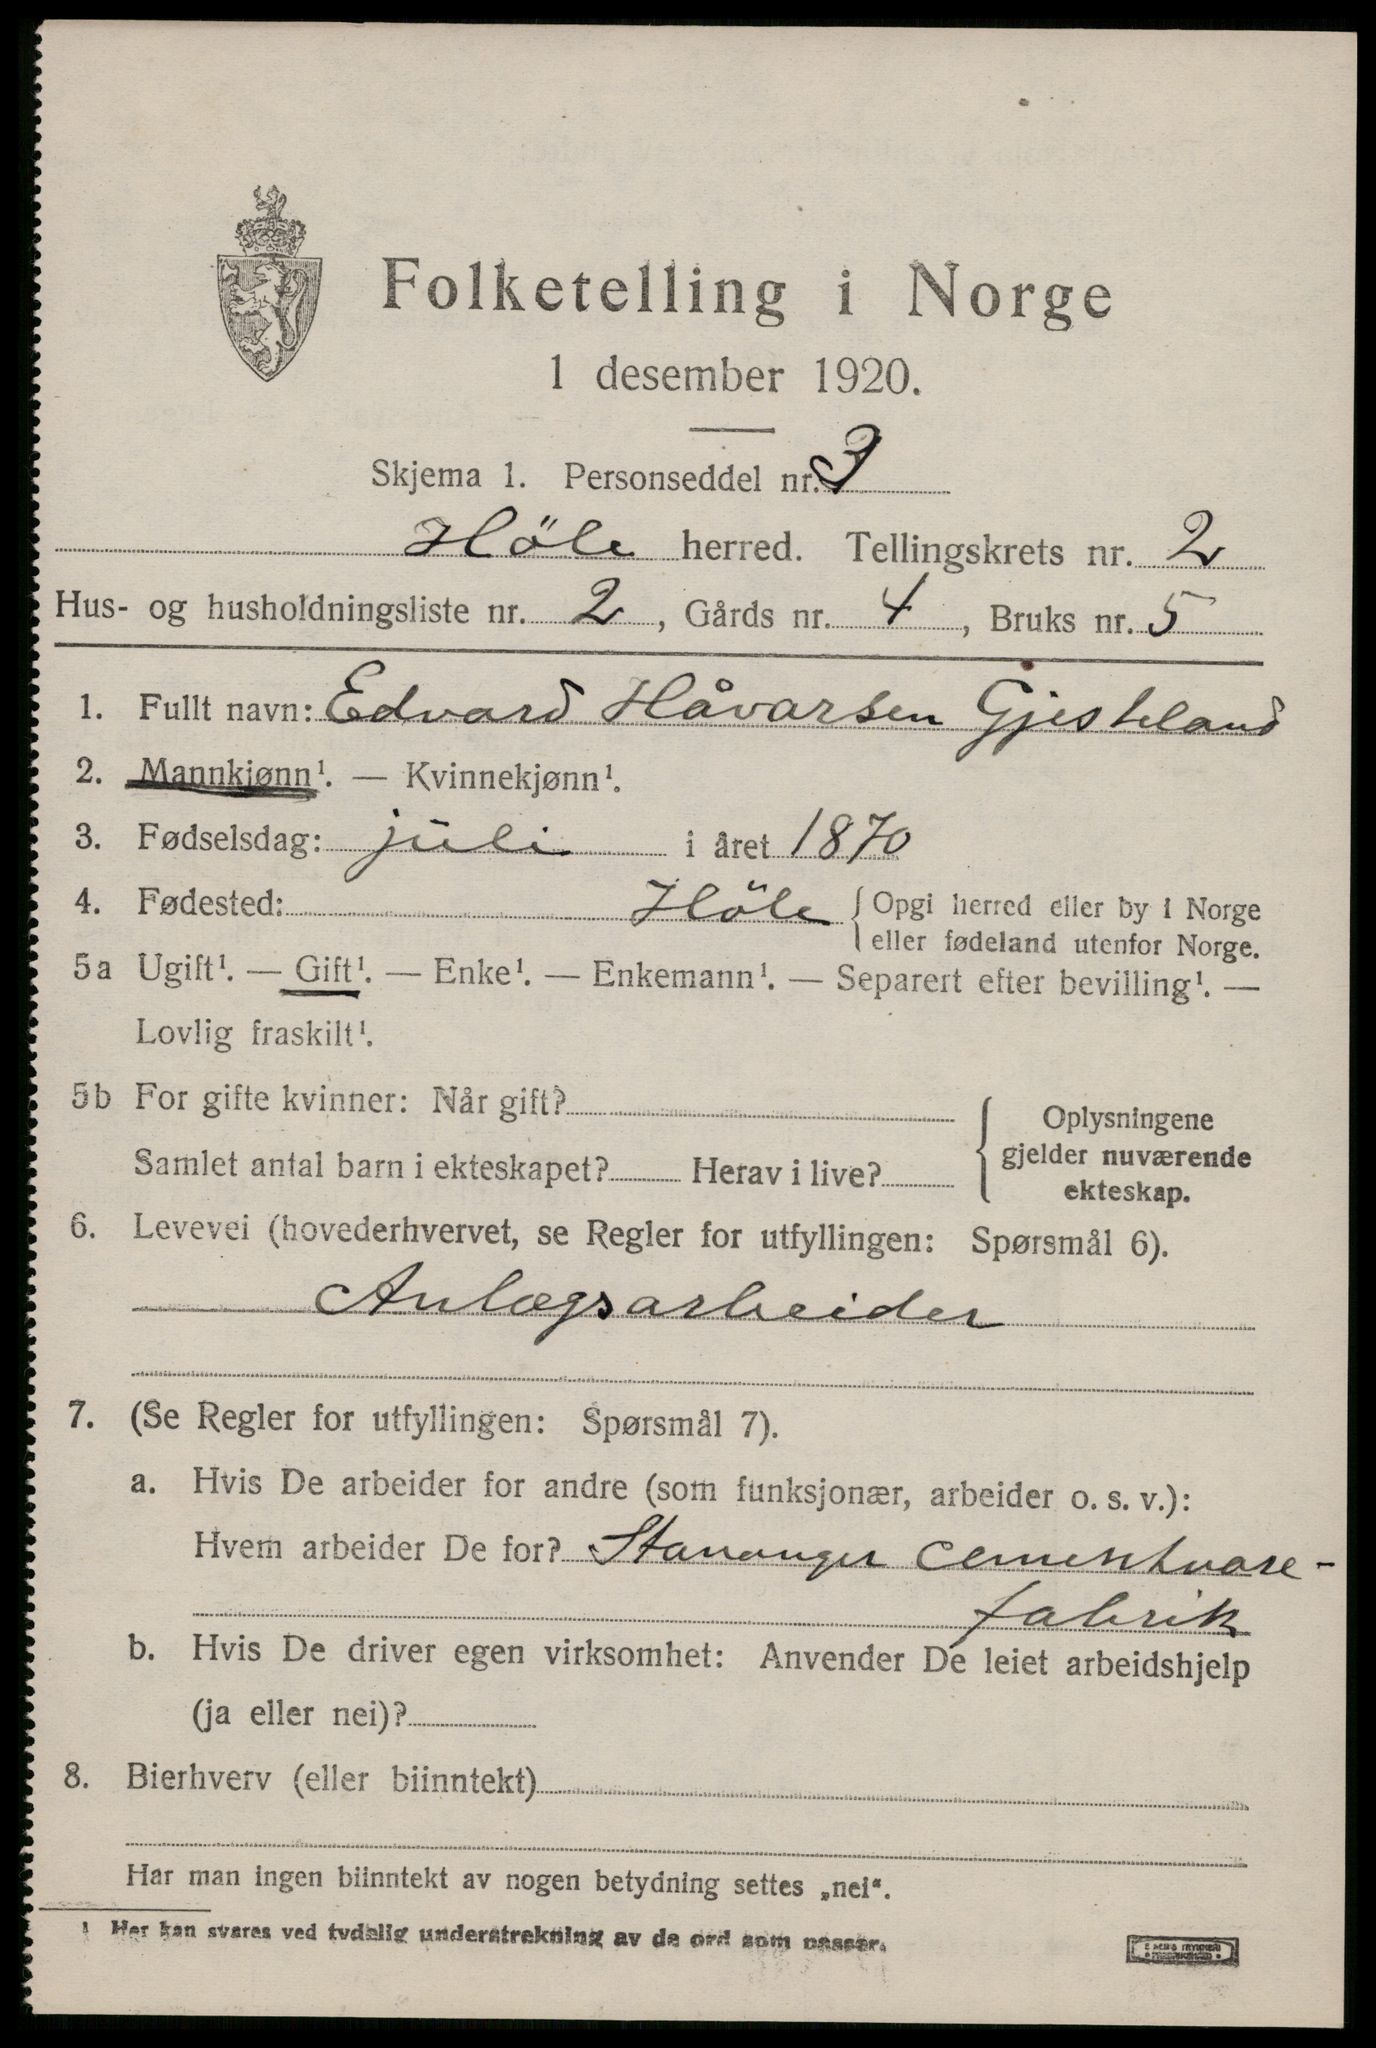 Folketelling i Norge
1 desember 1920.
Skjema 1. Personseddel nr. 3
Höle herred. Tellingskrets nr. 2
Hus- og husholdningsliste nr. 2, Gårds nr. 4, Bruks nr. 5
1. Fullt navn: Edvard Håvarsen Gjesteland
2. Mannkjønn¹. — Kvinnekjønn¹.
3. Fødselsdag: juli i året 1870
4. Fødested: Höle { Opgi herred eller by i Norge
eller fødeland utenfor Norge.
5a Ugift¹. — Gift¹. — Enke¹. — Enkemann¹. — Separert efter bevilling¹. —
Lovlig fraskilt¹.
5b For gifte kvinner: Når gift?
Samlet antal barn i ekteskapet? Herav i live?
{ Oplysningene
gjelder nuværende
ekteskap.
6. Levevei (hovederhvervet, se Regler for utfyllingen: Spørsmål 6).
Anlægsarbeider
7. (Se Regler for utfyllingen: Spørsmål 7).
a. Hvis De arbeider for andre (som funksjonær, arbeider o. s. v.):
Hvem arbeider De for? Stavanger cementvare-
fabrik
b. Hvis De driver egen virksomhet: Anvender De leiet arbeidshjelp
(ja eller nei)?
8. Bierhverv (eller biinntekt)
Har man ingen biinntekt av nogen betydning settes „nei“.
¹ Her kan svares ved tydelig understrekning av de ord som passer.